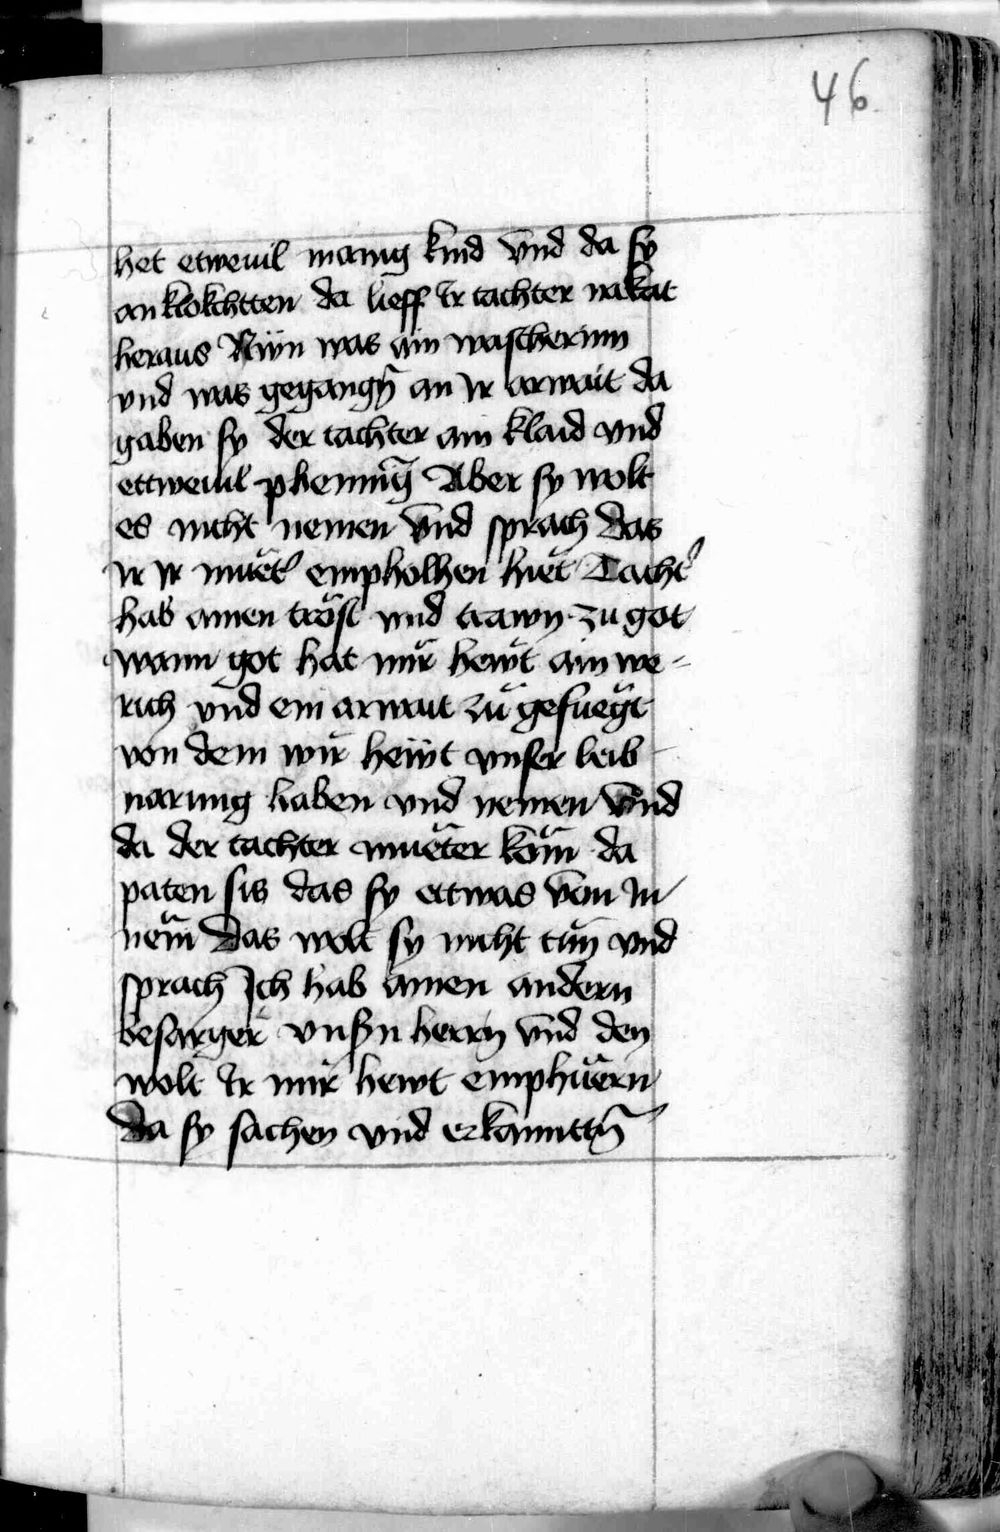 46
het etweuil manig kind vnd da sy
an klokchtten da lieff Ir tachter nakat
heraus Nvn was ain wascherinn
vnd was gegangn̄ an Ir arwait da
gaben sy der tachter ain klaid vnd
ettweuil phenninḡ Aber sy wolt
es nicht nemen vnd sprach das
Ir Ir muet' empholhen hiet Tacht'
hab ainen tröst vnd trawn zu got
wann got hat mir hewt ain we-
rich vnd ein arwait zu gefuegt
von dem wir hewt vnser leib
narung haben vnd nemen vnd
da der tachter mueter köm da
paten sis das sy ettwas von In
nem Das wolt sy nicht tun vnd
sprach Ich hab ainen andern
besarger vnsn herrn vnd den
wolt Ir mir hewt emphüern
da sy sachen vnd erkannttn̄